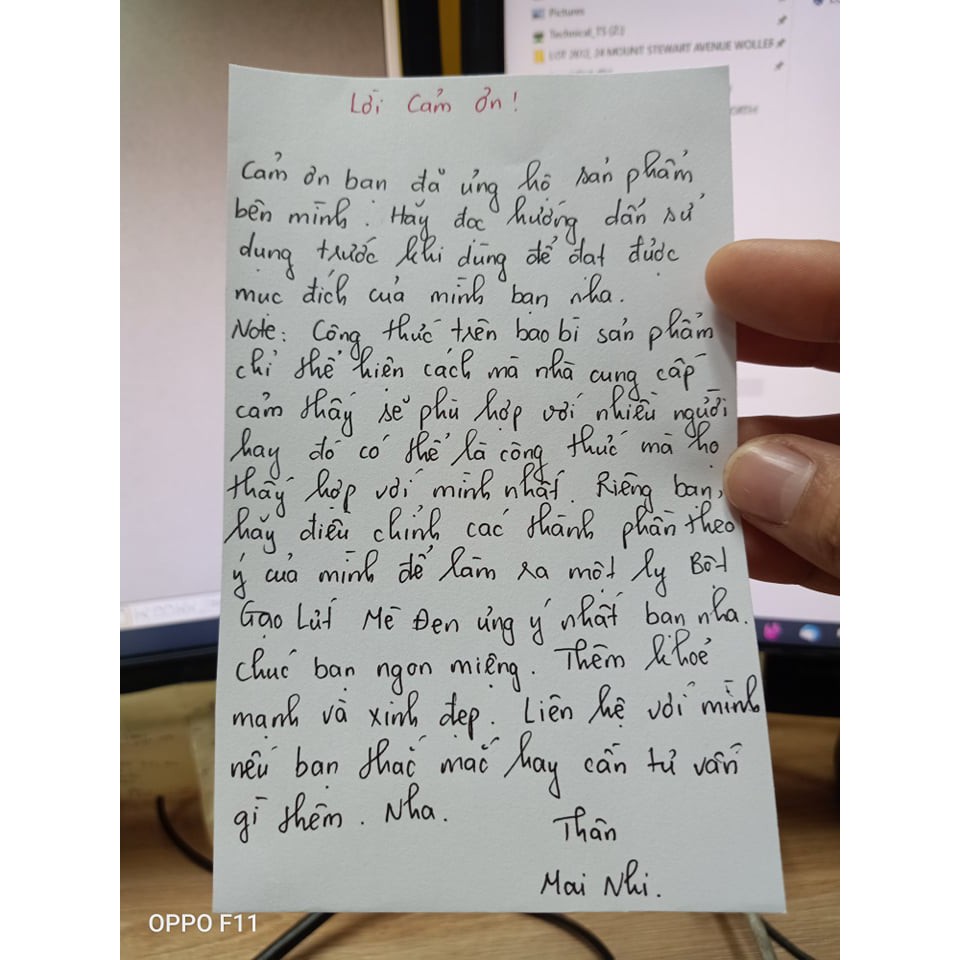 Pictures
Technical_TS (Z:)
LOT 2612, 24 MOUNT STEWART AVENUE WOLLER
Lời Cảm ơn!
Cảm ơn bạn đã ủng hộ sản phẩm
bên mình. Hãy đọc hướng dẫn sử
dụng trước khi dùng để đạt được
mục đích của mình bạn nha.
Note: Công thức trên bao bì sản phẩm
chỉ thể hiện cách mà nhà cung cấp
cảm thấy sẽ phù hợp với nhiều người
hay đó có thể là công thức mà họ
thấy hợp với mình nhất. Riêng bạn,
hãy điều chỉnh các thành phần theo
ý của mình để làm ra một ly Bột
Gạo Lứt Mè Đen ưng ý nhất bạn nha.
Chúc bạn ngon miệng. Thêm khoẻ
mạnh và xinh đẹp. Liên hệ với mình
nếu bạn thắc mắc hay cần tư vấn
gì thêm. Nha.
Thân
Mai Nhi.
OPPO F11